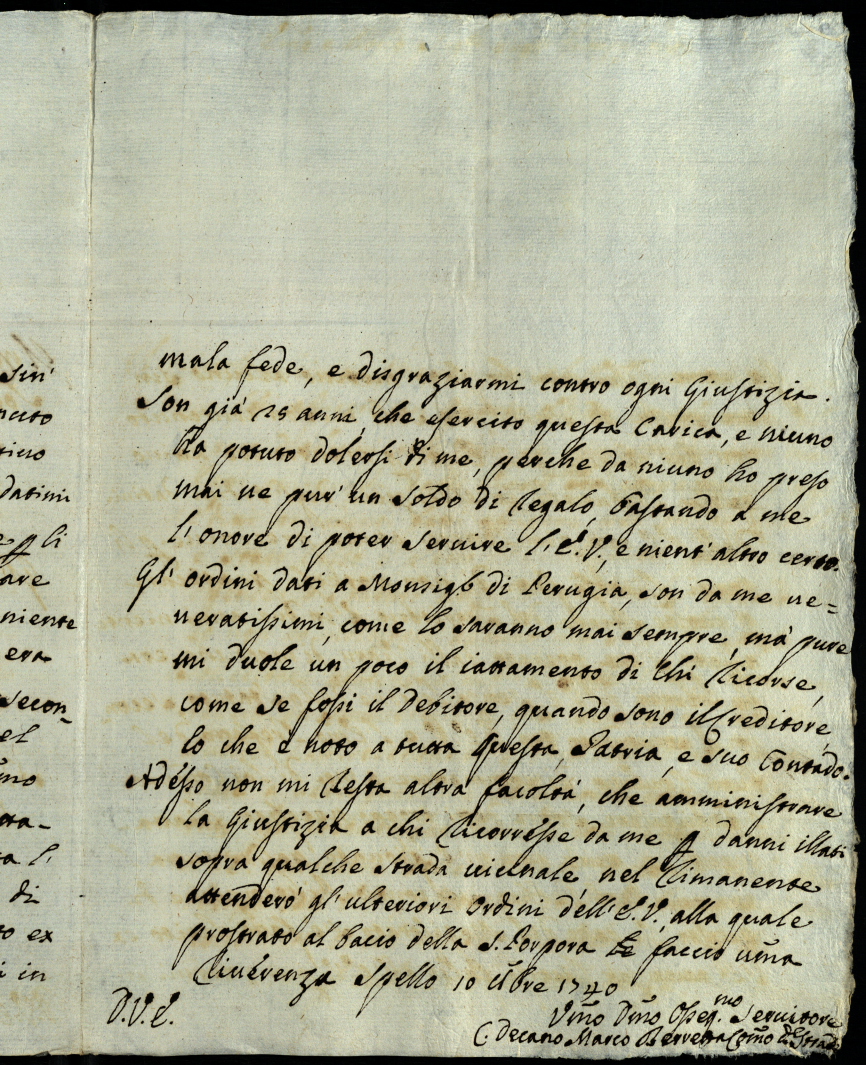 sin'
datimi
are
niente
era
secon-
el
di
to ex
i in
mala fede, e disgraziarmi contro ogni Giustizia.
Son già 25 anni, che esercito questa Carica, e niuno
ha potuto dolersi di me, perche da niuno ho preso
mai ne pur' un soldo di regalo, bastando a me
l'onore di poter servire l'E.V., e nient'altro certo.
Gl'ordini dati a Monsigr di Perugia, son da me ve=
neratissimi, come lo saranno mai sempre, mà pure
mi duole un poco il iattamento di Chi ricorse,
come se fossi il Debitore, quando sono il Creditore,
lo che è noto a tutta questa Patria, e suo Contado.
Adesso non mi resta altra facoltà, che amministrare
la Giustizia a chi ricorresse da me p danni illati
sopra qualche strada vicinale, nel rimanente
attenderò gl'ulteriori ordini dell'E.V., alla quale
prostrato al bacio della S. Porpora faccio uma
riverenza Spello 10 Xbre 1740
D.V.E.
Umo Dmo Osseq.mo Servitore
C. Decano Marco Berretta Como de Strade